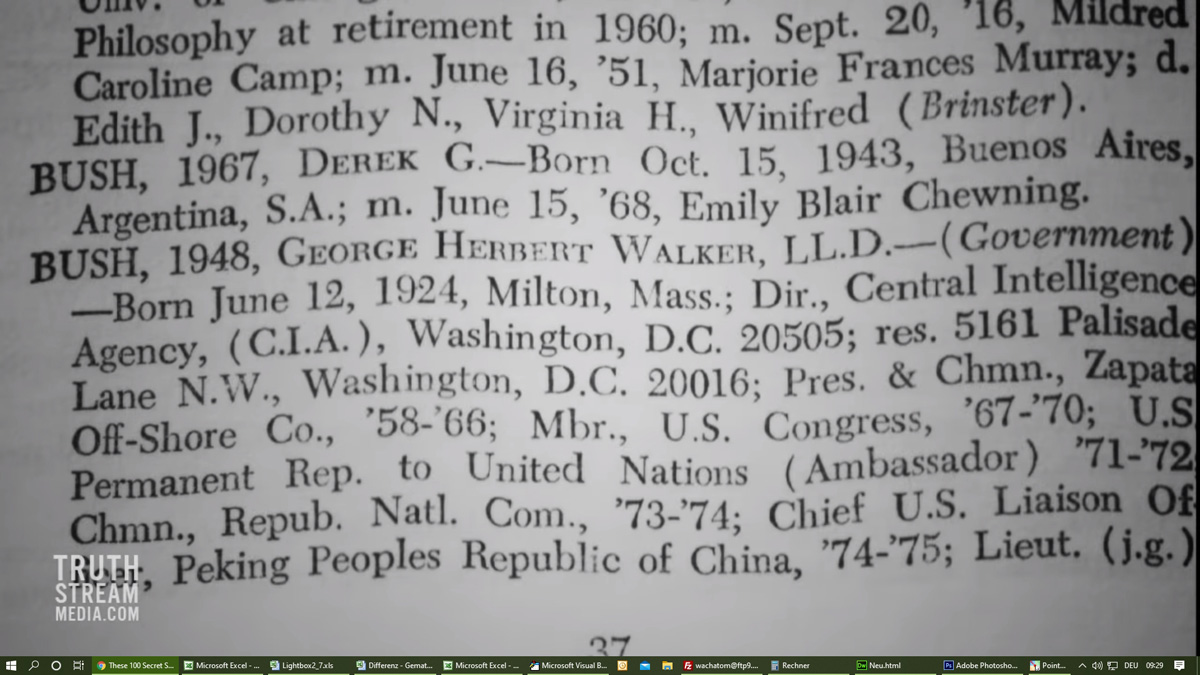 Philosophy at retirement in 1960; m. Sept. 20, '16, Mildred
Caroline Camp; m. June 16, '51, Marjorie Frances Murray; d.
Edith J., Dorothy N., Virginia H., Winifred (Brinster).
BUSH, 1967, DEREK G.—Born Oct. 15, 1943, Buenos Aires,
Argentina, S.A.; m. June 15, '68, Emily Blair Chewning.
BUSH, 1948, GEORGE HERBERT WALKER, LL.D.—(Government)
—Born June 12, 1924, Milton, Mass.; Dir., Central Intelligence
Agency, (C.I.A.), Washington, D.C. 20505; res. 5161 Palisade
Lane N.W., Washington, D.C. 20016; Pres. & Chmn., Zapata
Off-Shore Co., '58-'66; Mbr., U.S. Congress, '67-'70; U.S
Permanent Rep. to United Nations (Ambassador) '71-'72
Chmn., Repub. Natl. Com., '73-'74; Chief U.S. Liaison Of
Peking Peoples Republic of China, '74-'75; Lieut. (j.g.)
TRUTH
STREAM
MEDIA.COM
37
These 100 Secret S... Microsoft Excel - ... Lightbox2_7.xls Differenz - Gemat... Microsoft Excel - ... Microsoft Visual B... wachatom@ftp9.... Rechner Neu.html Adobe Photosho... Point... DEU 09:29